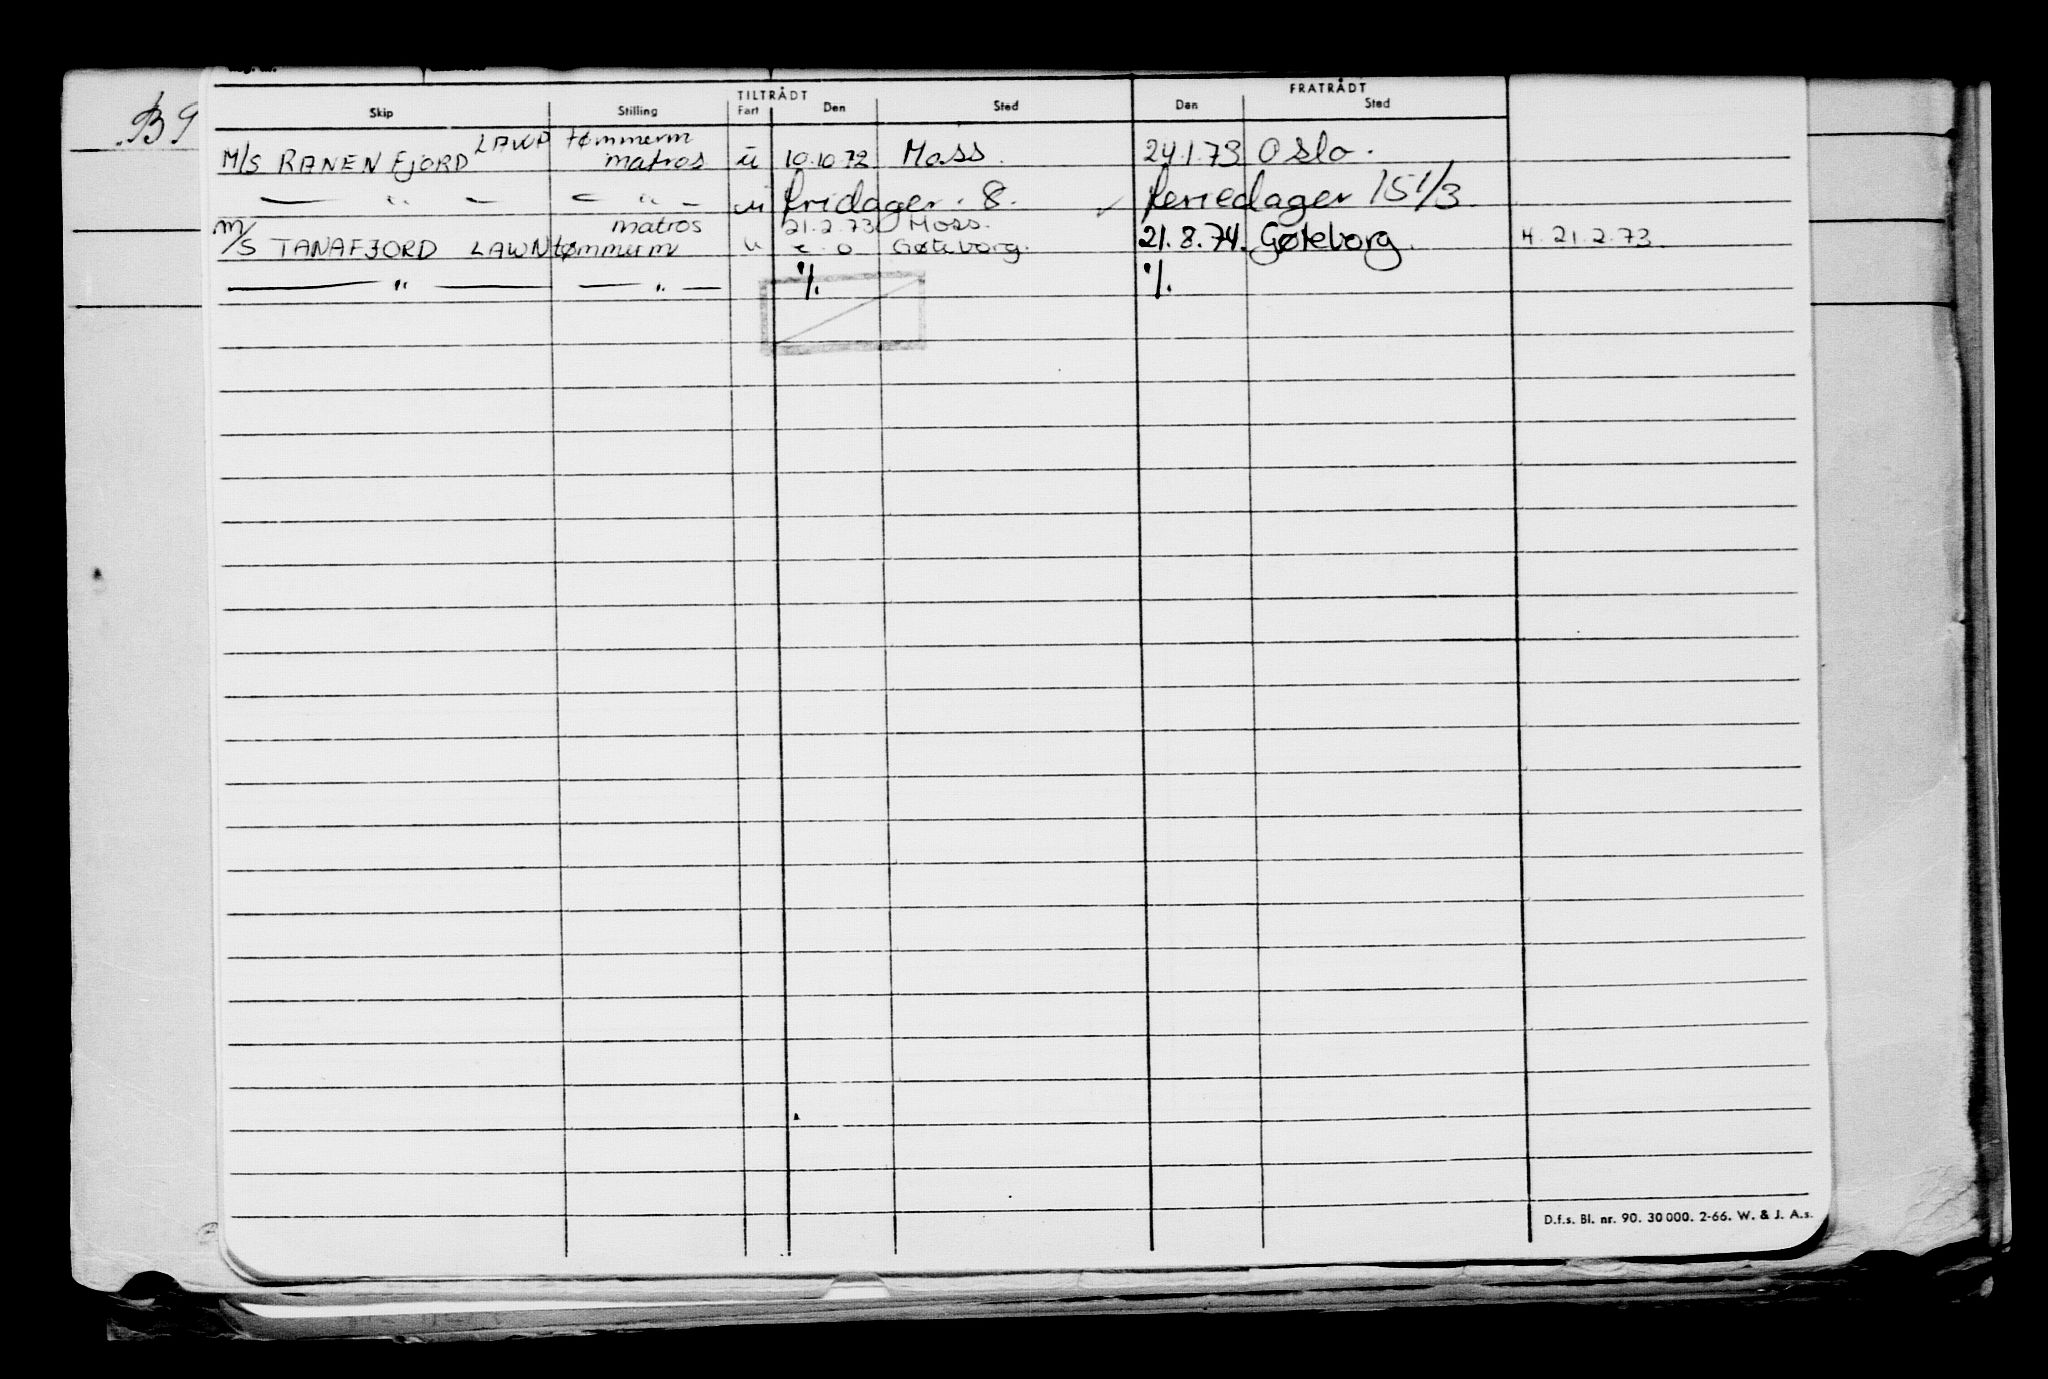 B9
TILTRÅDT FRATRÅDT
Skip Stilling Fart Den Sted Den Sted
LAWP tømmerm
M/S RANENFJORD matros ü 10.10.72 Moss. 24.1.73 Oslo.
— " — — " — ü fridager. 8. Feriedager 15 1/3
matros 21.2.73 Moss.
M/S TANAFJORD LAWN tømmerm u Gøteborg. 21.8.74. Gøteborg. 4. 21.2.73.
— " — — " — "/. "/.
D.f.s. Bl. nr. 90. 30 000. 2-66. W. & J. A.s.